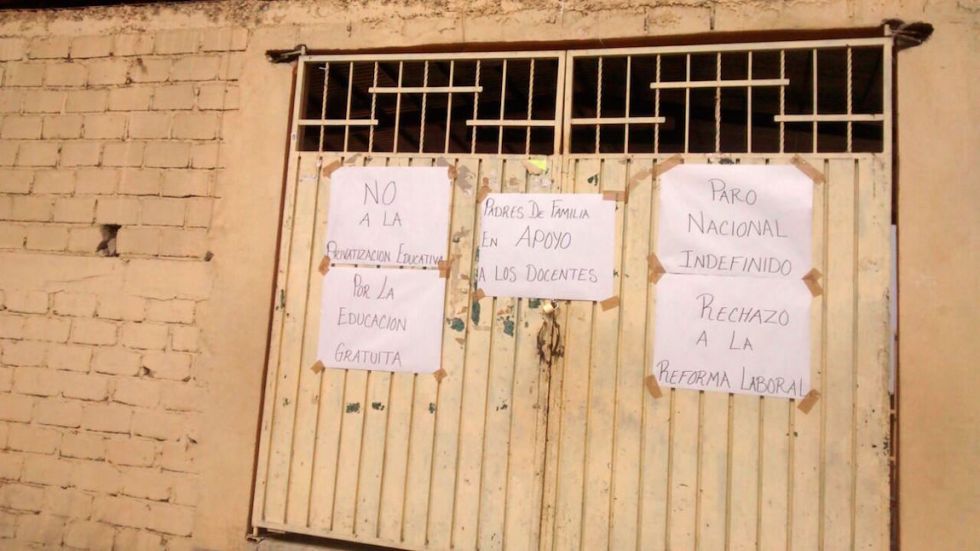 NO
A LA
PRIVATIZACION EDUCATIVA
POR LA
EDUCACION
GRATUITA
PADRES DE FAMILIA
EN APOYO
A LOS DOCENTES
PARO
NACIONAL
INDEFINIDO
RECHAZO
A LA
REFORMA LABORAL